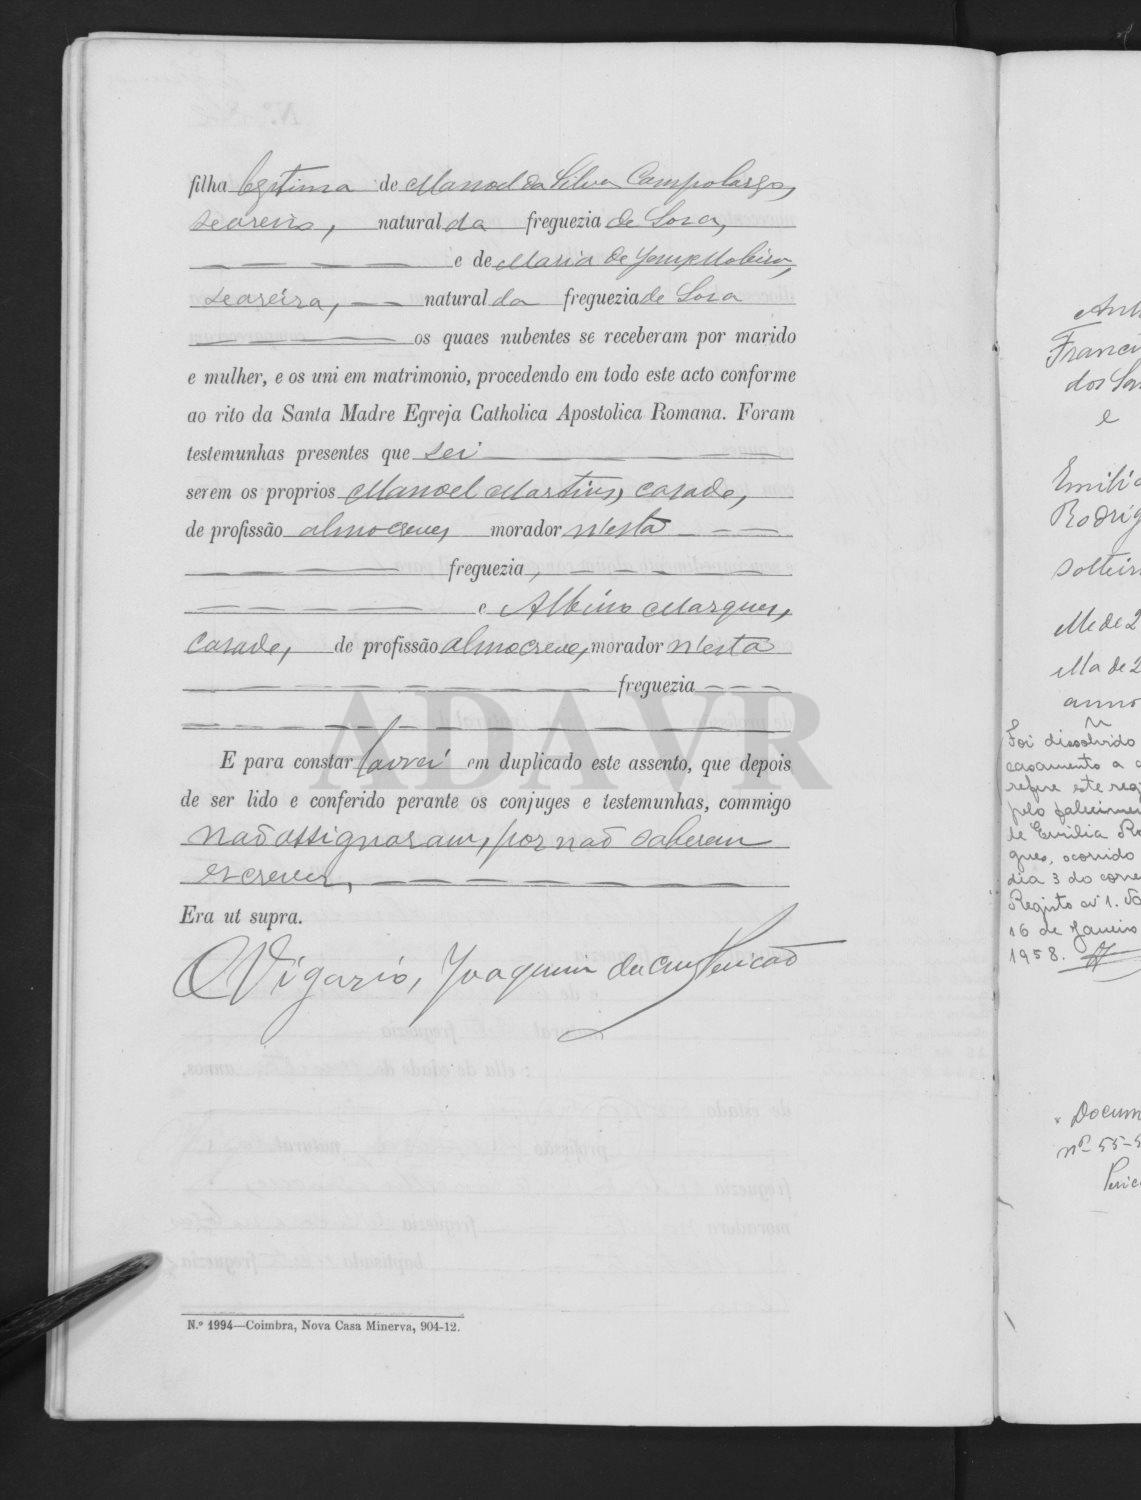 filha legitima de Manoel da Silva Campolargo,
seareiro, natural da freguezia de Soza,
e de Maria de
seareira, natural da freguezia de Soza
os quaes nubentes se receberam por marido
e mulher, e os uni em matrimonio, procedendo em todo este acto conforme
ao rito da Santa Madre Egreja Catholica Apostolica Romana. Foram
testemunhas presentes que sei
serem os proprios Manoel Martins, casado,
de profissão almocreve, morador n'esta
freguezia,
e Albino Marques,
casado, de profissão almocreve, morador n'esta
freguezia
E para constar lavrei em duplicado este assento, que depois
de ser lido e conferido perante os conjuges e testemunhas, commigo
não assignaram, por não saberem
escrever,
Era ut supra.
O Vigario, Joaquim da
N.º 1994—Coimbra, Nova Casa Minerva, 904-12.
ADAVR
Franci
dos
e
Emilia
Rodrig
solteir
Elle de 2
Ella de 2
anno
Foi dissolvido
casamento a
refere este reg
pelo falecimen
de Emilia Ro
gues, ocorrido
dia 3 do corre
Registo nº 1.
16 de Janeiro
1958.
Docum
nº 55-5